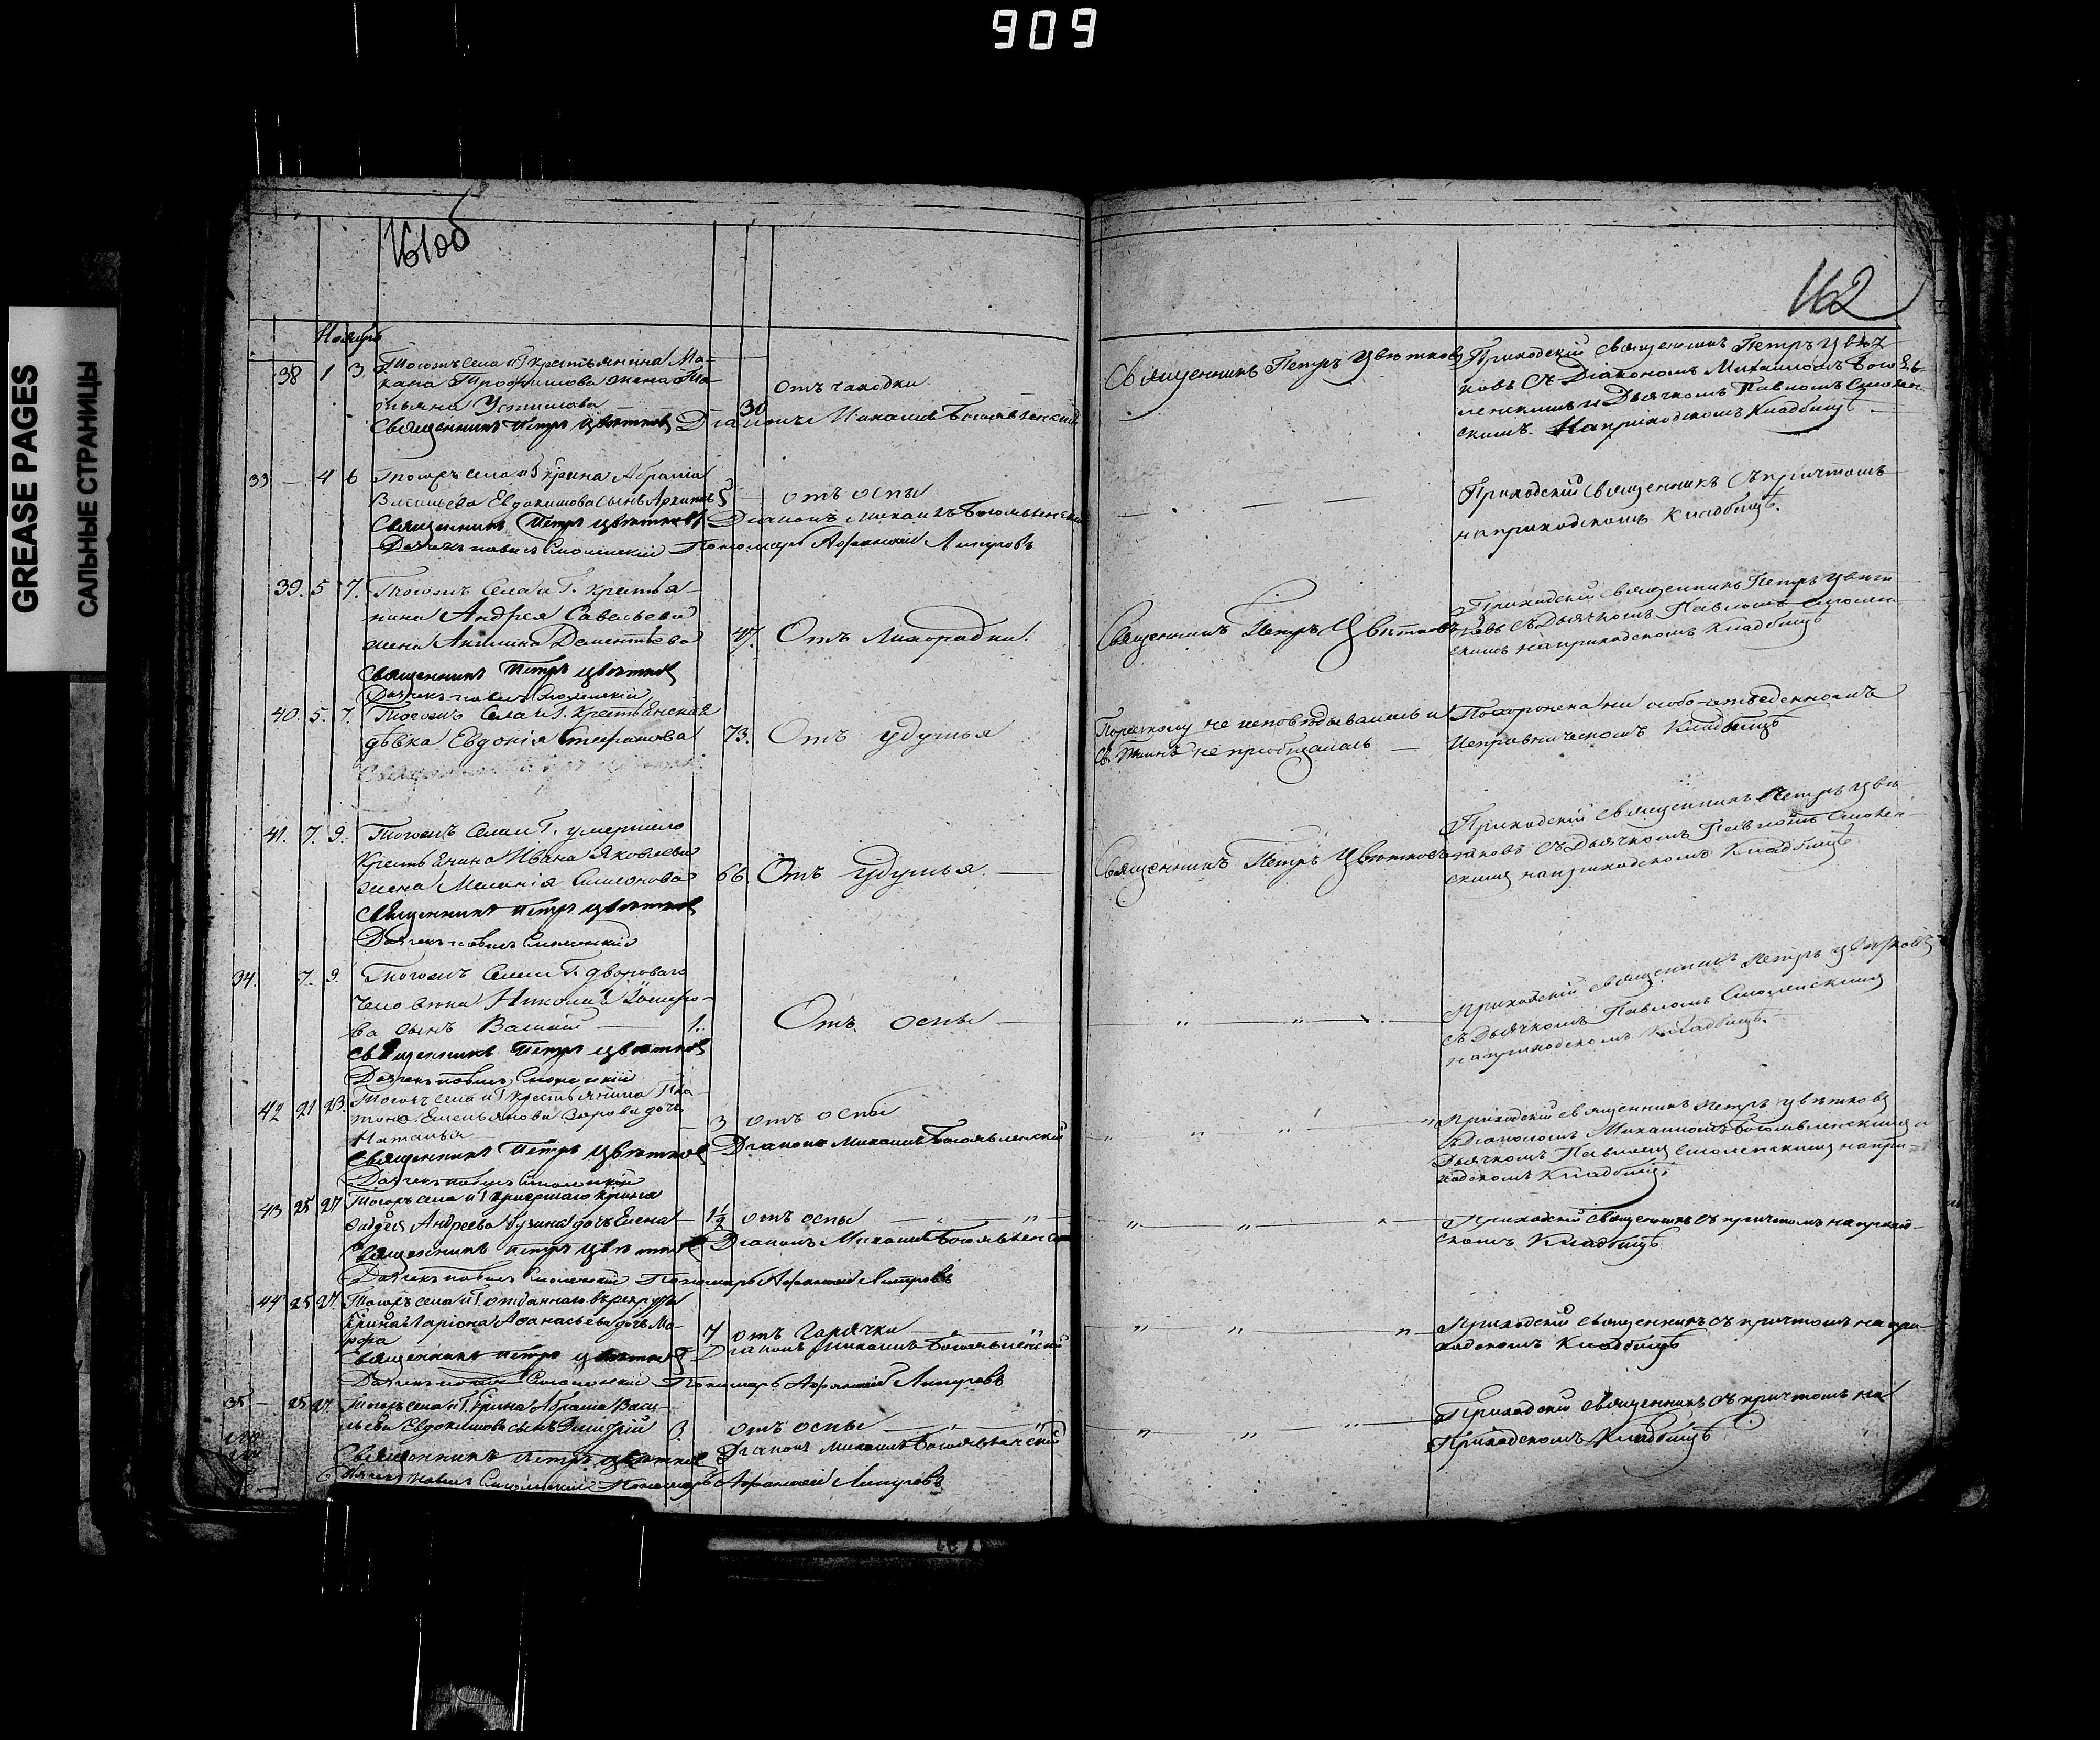 909
GREASE PAGES
САЛЬНЫЕ СТРАНИЦЫ
161об
162
Ноябрь
38 1 3. Тогожъ села и Г. крестьянина Ма-
кара Трофимова жена Та-
тьяна 30 отъ чахотки
Священникъ Петръ Цвѣтковъ Діаконъ Михаилъ Богоявленскій
Священникъ Петръ Цвѣтковъ
Приходскій священникъ Петръ Цвѣт-
ковъ съ Діакономъ Михаиломъ Богояв-
ленскимъ и Дьячкомъ Павломъ Смолен-
скимъ. На приходскомъ кладбищѣ
33 — 4 6 Тогожъ села и Г. крина Абрама
Васильева Евдокимова сынъ 3 отъ оспы
Священникъ Петръ Цвѣтковъ Діаконъ Михаилъ Богоявленскій
Дьячекъ Павелъ Смоленскій Пономарь Афанасій
Приходскій священникъ съ причтомъ
на приходскомъ кладбищѣ.
39. 5 7. Тогожъ села и Г. крестья-
нина Андрея Савельева
жена Акилина Дементьева 47. Отъ лихорадки.
Священникъ Петръ Цвѣтковъ
Дьячекъ Павелъ Смоленскій
Священникъ Петръ Цвѣтковъ
Приходскій священникъ Петръ Цвѣт-
ковъ съ Дьячкомъ Павломъ Смолен-
скимъ на приходскомъ кладбищѣ
40. 5. 7. Тогожъ села и Г. крестьянская
дѣвка Евдокія Стефанова 73. Отъ удушья
По расколу не исповѣдывалась и
Св. Таинъ не пріобщалась —
Похоронена на особо-отведенномъ
кладбищѣ
41. 7. 9. Тогожъ села и Г. умершаго
крестьянина Ивана Яковлева
жена Меланія Симеонова 66. Отъ удушья. —
Священникъ Петръ Цвѣтковъ
Дьячекъ Павелъ Смоленскій
Священникъ Петръ Цвѣтковъ
Приходскій священникъ Петръ Цвѣ-
тковъ съ Дьячкомъ Павломъ Смолен-
скимъ на приходскомъ кладбищѣ
34. 7. 9. Тогожъ села и Г. двороваго
человѣка Николая
сынъ Василій — 1. Отъ оспы —
Священникъ Петръ Цвѣтковъ
Дьячекъ Павелъ Смоленскій
Приходскій священникъ Петръ Цвѣтковъ
съ Дьячкомъ Павломъ Смоленскимъ
на приходскомъ кладбищѣ.
42 21 23. Тогожъ села и Г. крестьянина Пла-
тона Емельянова дочь
Наталья — 3 отъ оспы
Священникъ Петръ Цвѣтковъ Діаконъ Михаилъ Богоявленскій
Дьячекъ Павелъ Смоленскій
Приходскій священникъ Петръ Цвѣтковъ
съ Діакономъ Михаиломъ Богоявленскимъ и
Дьячкомъ Павломъ Смоленскимъ на при-
ходскомъ кладбищѣ
43 25 27 Тогожъ села и Г. умершаго крина
Фадѣя Андреева дочь Елена 1½ отъ оспы
Священникъ Петръ Цвѣтковъ Діаконъ Михаилъ Богоявленскій
Дьячекъ Павелъ Смоленскій Пономарь Афанасій
Приходскій священникъ съ причтомъ на приход-
скомъ кладбищѣ
44 25 27. Тогожъ села и Г. отданнаго въ рекруты
крина Ларіона Афанасьева дочь Ма-
рфа 7 отъ горячки
Священникъ Петръ Цвѣтковъ Діаконъ Михаилъ Богоявленскій
Дьячекъ Павелъ Смоленскій Пономарь Афанасій
Приходскій священникъ съ причтомъ на при-
ходскомъ кладбищѣ
35 — 25 27. Тогожъ села и Г. крина Абрама Васи-
льева Евдокимова сынъ Димитрій 3. отъ оспы
Священникъ Петръ Цвѣтковъ Діаконъ Михаилъ Богоявленскій
Дьячекъ Павелъ Смоленскій Пономарь Афанасій
Приходскій священникъ съ причтомъ на
приходскомъ кладбищѣ